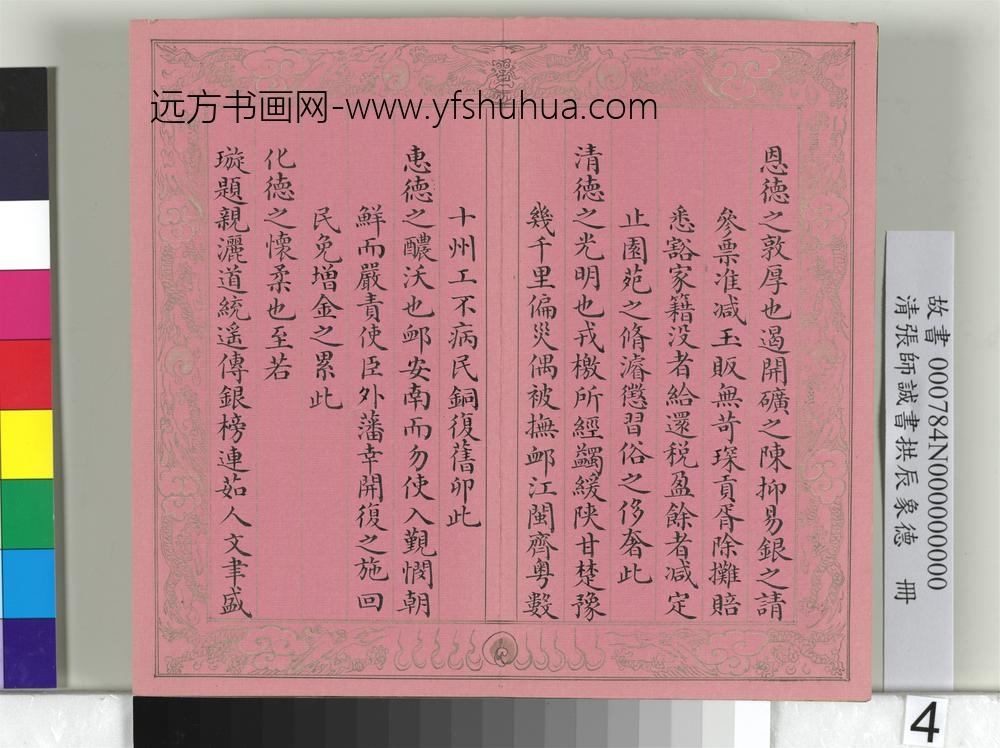 远方书画网-www.yfshuhua.com
恩德之敦厚也遏開礦之陳抑易銀之請
參票准減玉販無苛琛貢胥除攤賠
悉豁家籍没者給還税盈餘者减定
止園苑之脩濬懲習俗之侈奢此
清德之光明也戎檄所經蠲緩陝甘楚豫
幾千里偏災偶被撫䘏江閩齊粤數
十州工不病民銅復舊卯此
惠德之醲沃也䘏安南而勿使入覲憫朝
鮮而嚴責使臣外藩幸開復之施回
民免增金之累此
化德之懷柔也至若
璇題親灑道統遥傳銀榜連茹人文聿盛
故書 000784N000000000
清張師誠書拱辰象德 冊
4